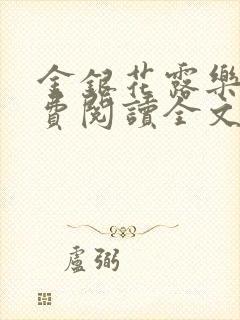 金銀花露樂
費閱讀全文
盧弼